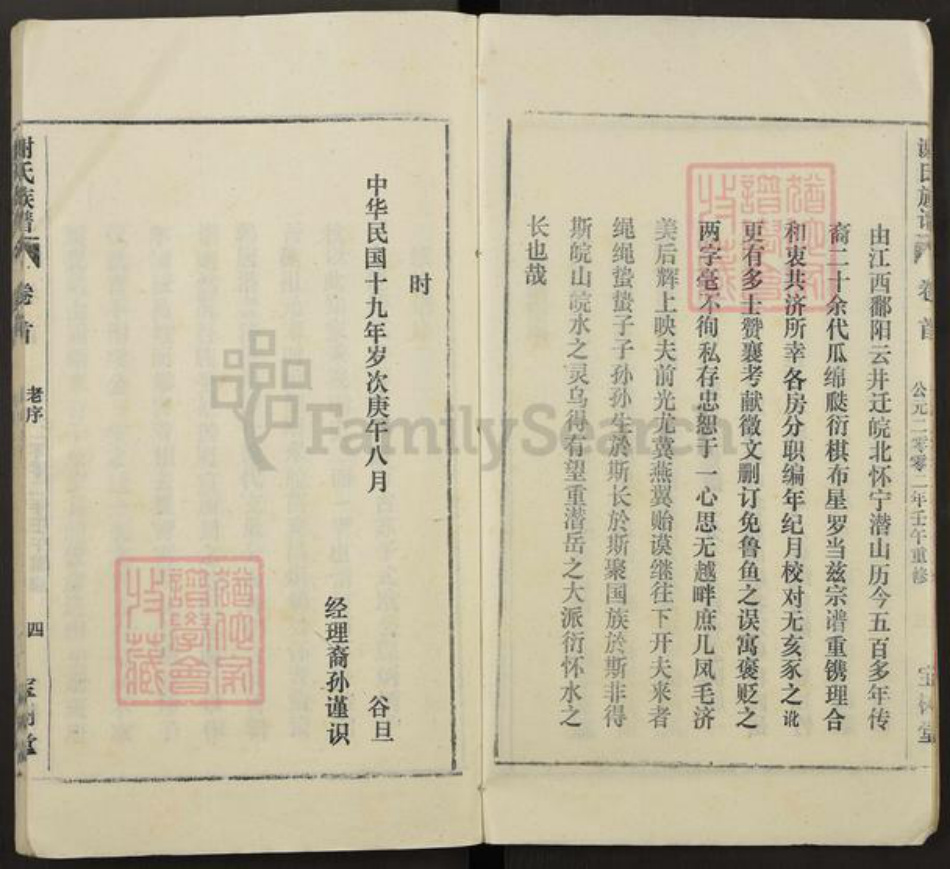 谢氏族谱
卷首
公元二零零二年壬午重修
宝树堂
由江西鄱阳云井迁皖北怀宁潜山历今五百多年传
裔二十余代瓜绵瓞衍棋布星罗当兹宗谱重镌理合
和衷共济所幸各房分职编年纪月校对无亥豕之讹
更有多士赞襄考献徵文删订免鲁鱼之误寓褒贬之
两字毫不徇私存忠恕于一心思无越畔庶几凤毛济
美后辉上映夫前光尤冀燕翼贻谟继往下开夫来者
绳绳蛰蛰子子孙孙生於斯长於斯聚国族於斯非得
斯皖山皖水之灵乌得有望重潜岳之大派衍怀水之
长也哉
时
中华民国十九年岁次庚午八月 谷旦
经理裔孙谨识
谢氏族谱
卷首
老序
四
宝树堂
FamilySearch